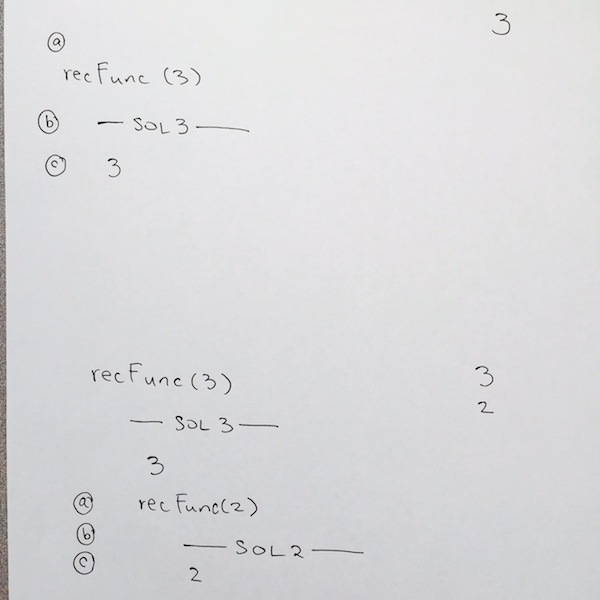 3
ⓐ
recFunc (3)
ⓑ — SOL 3 —
ⓒ 3
recFunc(3) 3
2
— SOL 3 —
3
ⓐ recFunc(2)
ⓑ
— SOL 2 —
ⓒ 2